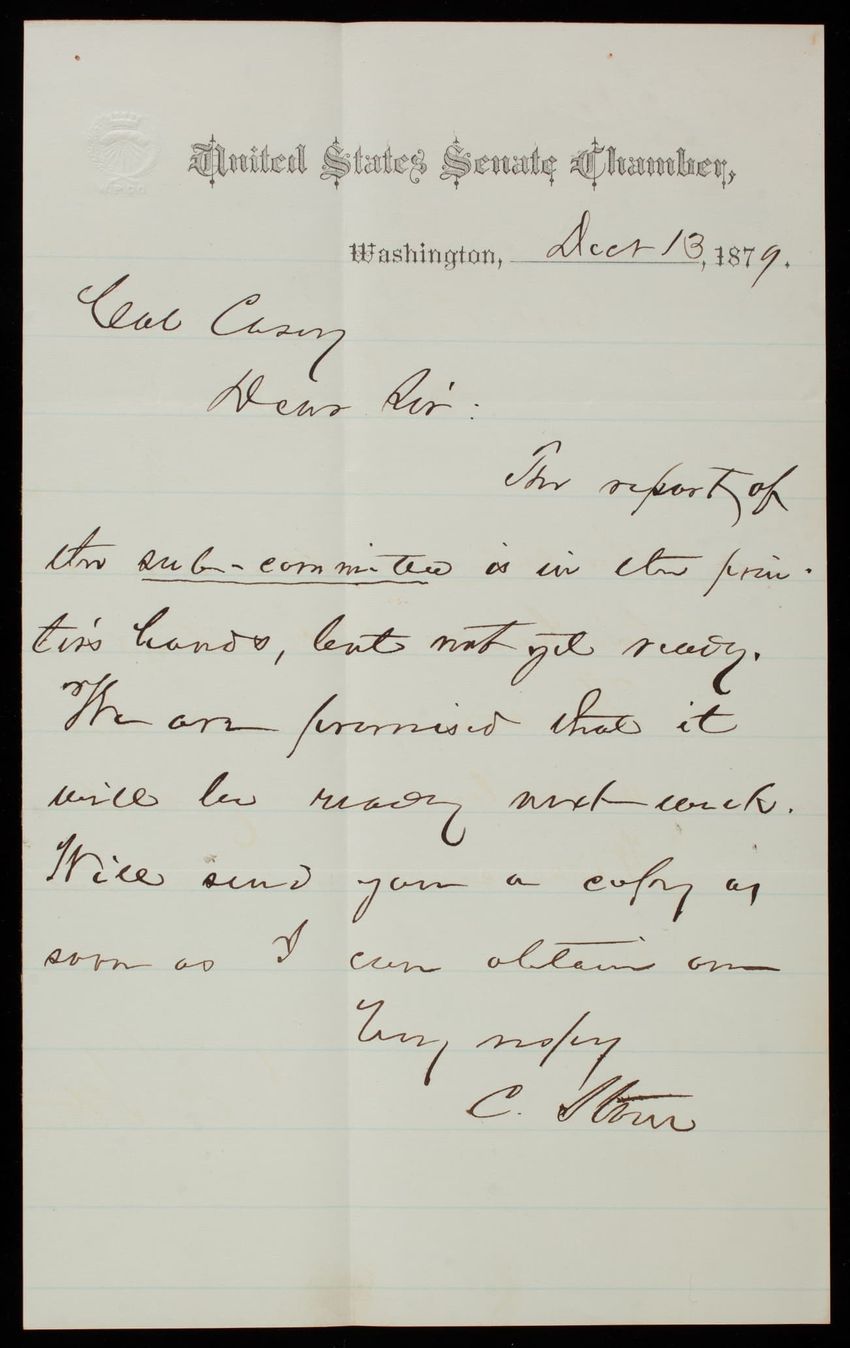 United States Senate Chamber,
Washington, Dect 13, 1879.
Col Casey
Dear Sir:
The report of
the sub-committee is in the prin-
ter's hands, but not yet ready.
We are promised that it
will be ready next week.
Will send you a copy as
soon as I can obtain one
Very respy
C.